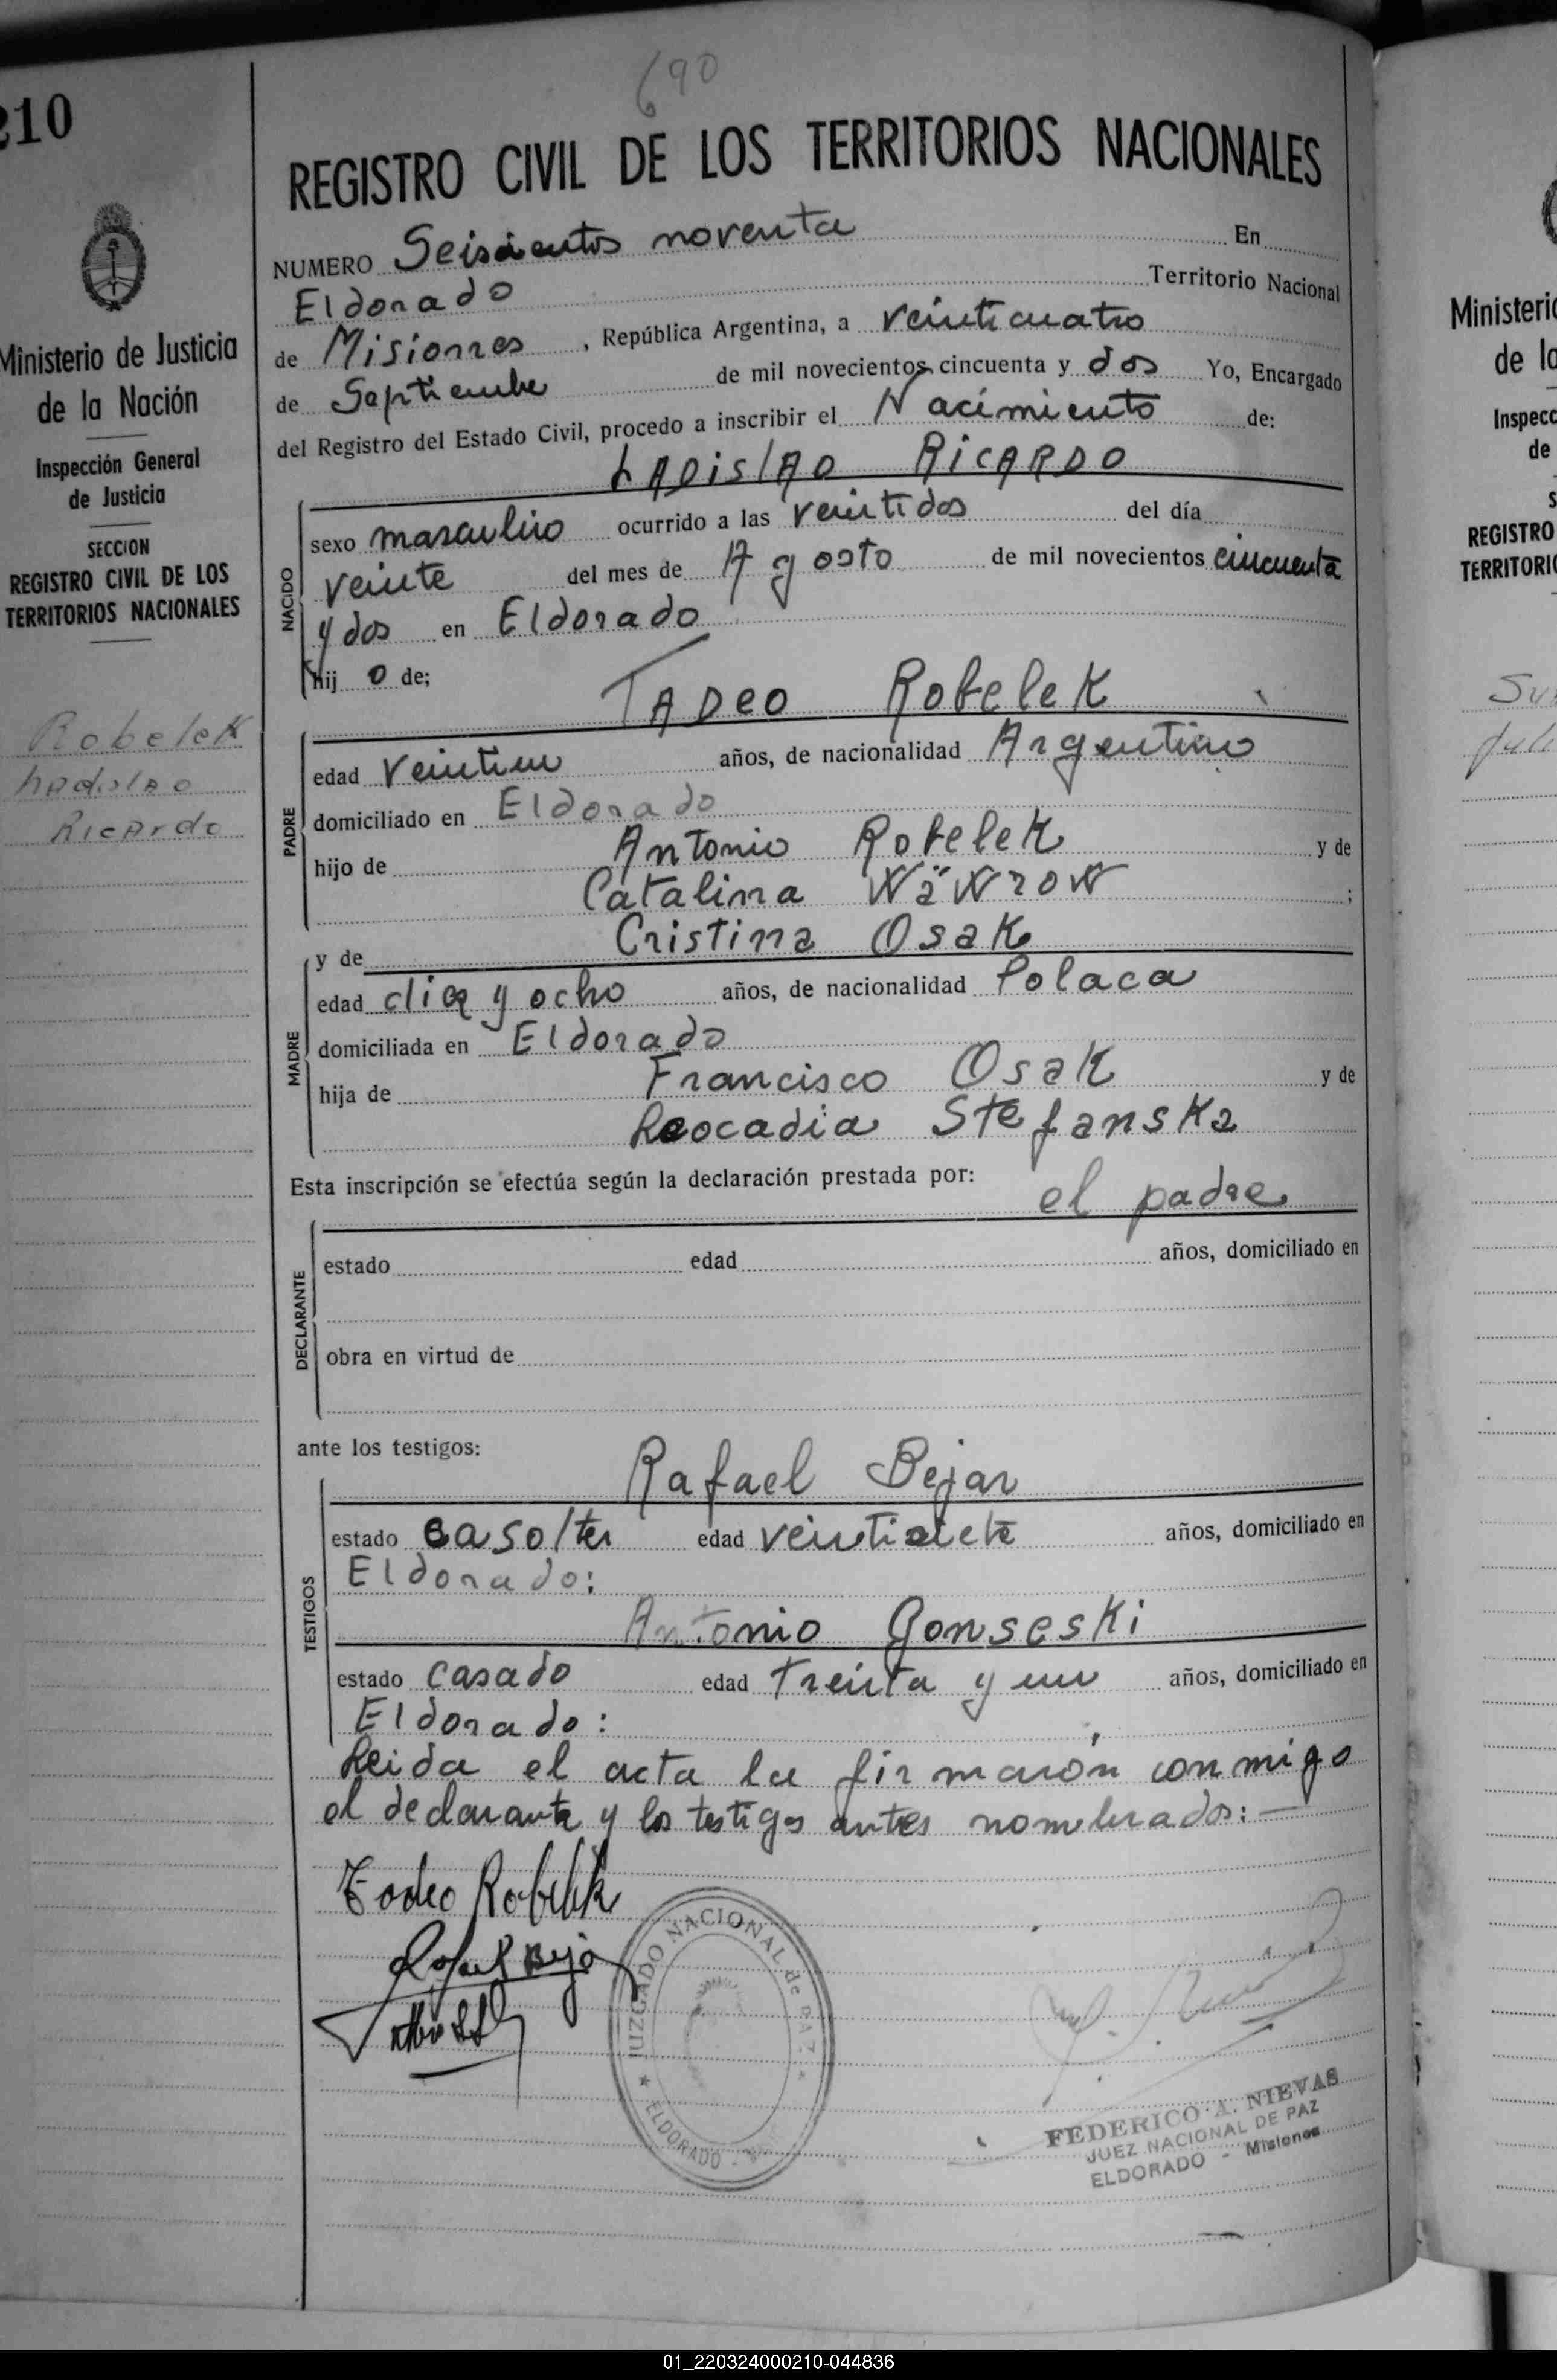 690
210
REGISTRO CIVIL DE LOS TERRITORIOS NACIONALES
NUMERO Seiscientos noventa En
Eldorado Territorio Nacional
de Misiones, República Argentina, a veinticuatro
de Septiembre de mil novecientos cincuenta y dos Yo, Encargado
del Registro del Estado Civil, procedo a inscribir el Nacimiento de:
LADISLAO RICARDO
NACIDO
sexo masculino ocurrido a las veintidos del día
veinte del mes de Agosto de mil novecientos cincuenta
y dos en Eldorado
hij o de;
TADEO Robelek
PADRE
edad veintiun años, de nacionalidad Argentino
domiciliado en Eldorado
hijo de Antonio Robelek y de
Catalina Wäwrow ;
y de Cristina Osak
MADRE
edad diez y ocho años, de nacionalidad Polaca
domiciliada en Eldorado
hija de Francisco Osak y de
Leocadia Stefanska
Esta inscripción se efectúa según la declaración prestada por: el padre
DECLARANTE
estado edad años, domiciliado en
obra en virtud de
ante los testigos:
Rafael Bejar
TESTIGOS
estado edad veintisiete años, domiciliado en
Eldorado:
Antonio Gonseski
estado casado edad treinta y un años, domiciliado en
Eldorado:
Leida el acta la firmarón conmigo
el declarante y los testigos antes nombrados: —
Tadeo Robelek
Rafael Beja
JUZGADO NACIONAL de PAZ
ELDORADO
FEDERICO A. NIEVAS
JUEZ NACIONAL DE PAZ
ELDORADO - Misiones
Ministerio de Justicia
de la Nación
Inspección General
de Justicia
SECCION
REGISTRO CIVIL DE LOS
TERRITORIOS NACIONALES
Robelek
Ladislao
Ricardo
Ministerio
de la
Inspecc
de
S
REGISTRO
TERRITORIO
01_220324000210-044836